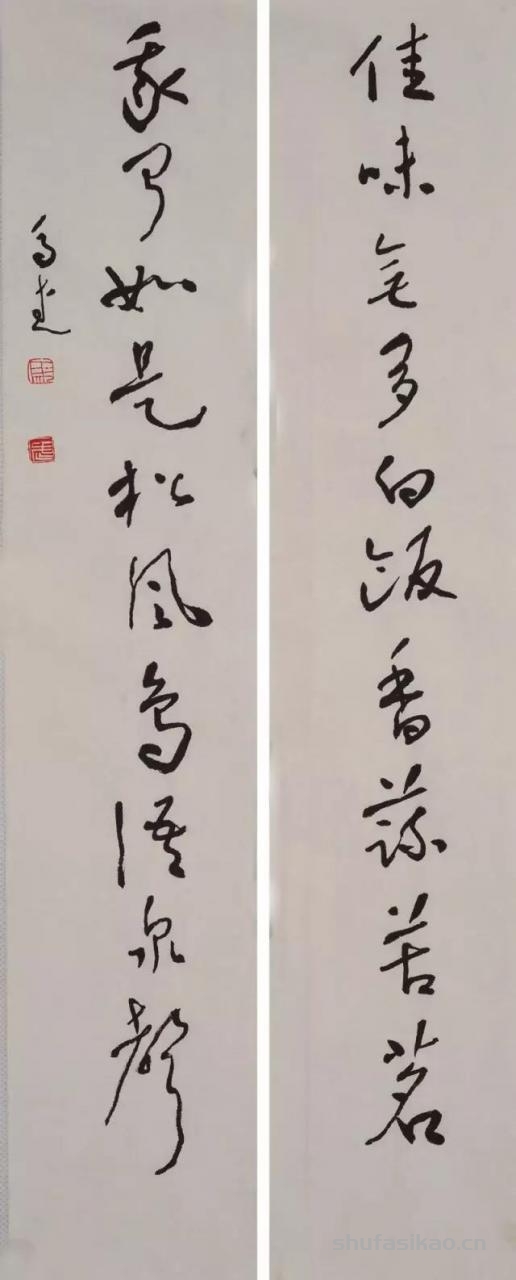 佳味無多白飯香蔬苦茗
我聞如是松風鳥語泉聲
shufasikao.cn